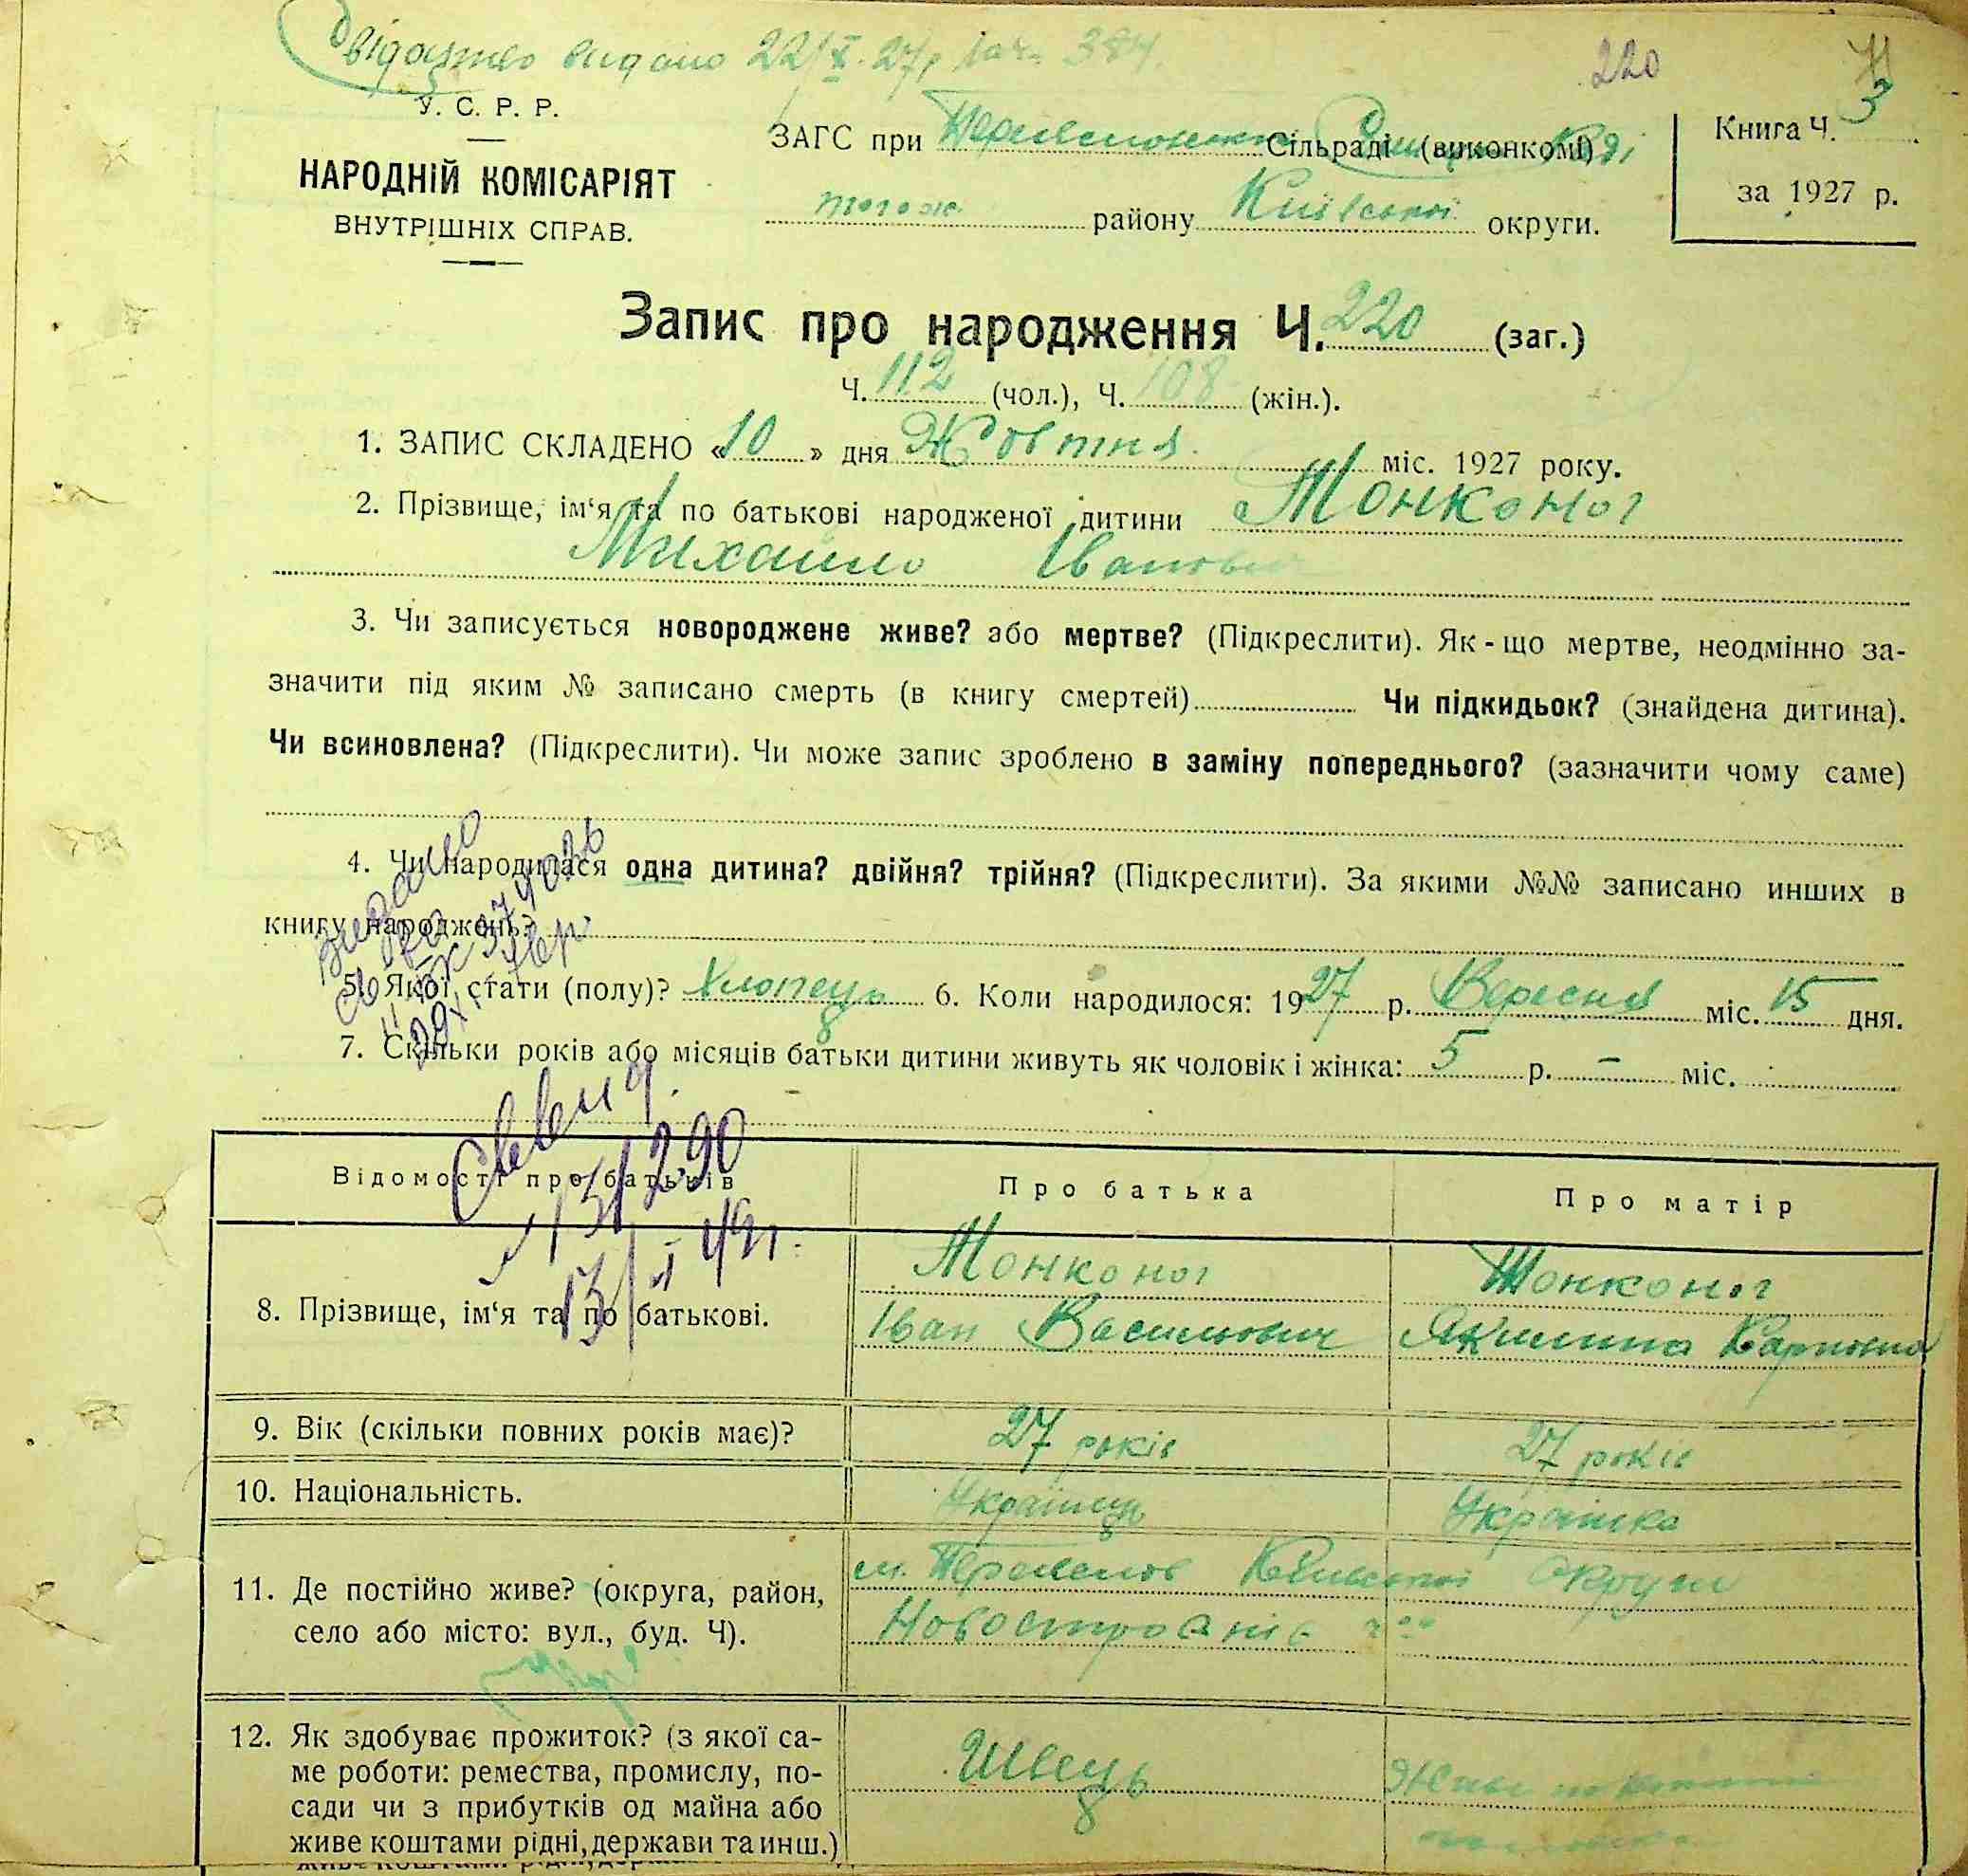 Свідоцтво видано 22/X.27р. 384.
220
У. С. Р. Р.
НАРОДНІЙ КОМІСАРІЯТ
ВНУТРІШНІХ СПРАВ.
ЗАГС при Сільраді (виконкомі)
тогож району Київської округи.
Книга Ч. 3
за 1927 р.
Запис про народження Ч. 220 (заг.)
Ч. 112 (чол.), Ч. 108 (жін.).
1. ЗАПИС СКЛАДЕНО «10» дня Жовтня міс. 1927 року.
2. Прізвище, ім‘я та по батькові народженої дитини Тонконог
Михайло Іванович
3. Чи записується новороджене живе? або мертве? (Підкреслити). Як-що мертве, неодмінно за-
значити під яким № записано смерть (в книгу смертей) Чи підкидьок? (знайдена дитина).
Чи всиновлена? (Підкреслити). Чи може запис зроблено в заміну попереднього? (зазначити чому саме)
4. Чи народилася одна дитина? двійня? трійня? (Підкреслити). За якими №№ записано инших в
книгу народжень?
видано
5. Якої стати (полу)? Хлопець 6. Коли народилося: 1927 р. Вересня міс. 15 дня.
7. Скільки років або місяців батьки дитини живуть як чоловік і жінка: 5 р. – міс.
Відомості про батьків
Про батька
Про матір
8. Прізвище, ім‘я та по батькові.
Тонконог
Іван Васильович
Тонконог
Якилина Карповна
9. Вік (скільки повних років має)?
27 років
27 років
10. Національність.
Українець
Українка
11. Де постійно живе? (округа, район,
село або місто: вул., буд. Ч).
м. Переяслов Київської Округи
12. Як здобуває прожиток? (з якої са-
ме роботи: ремества, промислу, по-
сади чи з прибутків од майна або
живе коштами рідні, держави та инш.)
Швець